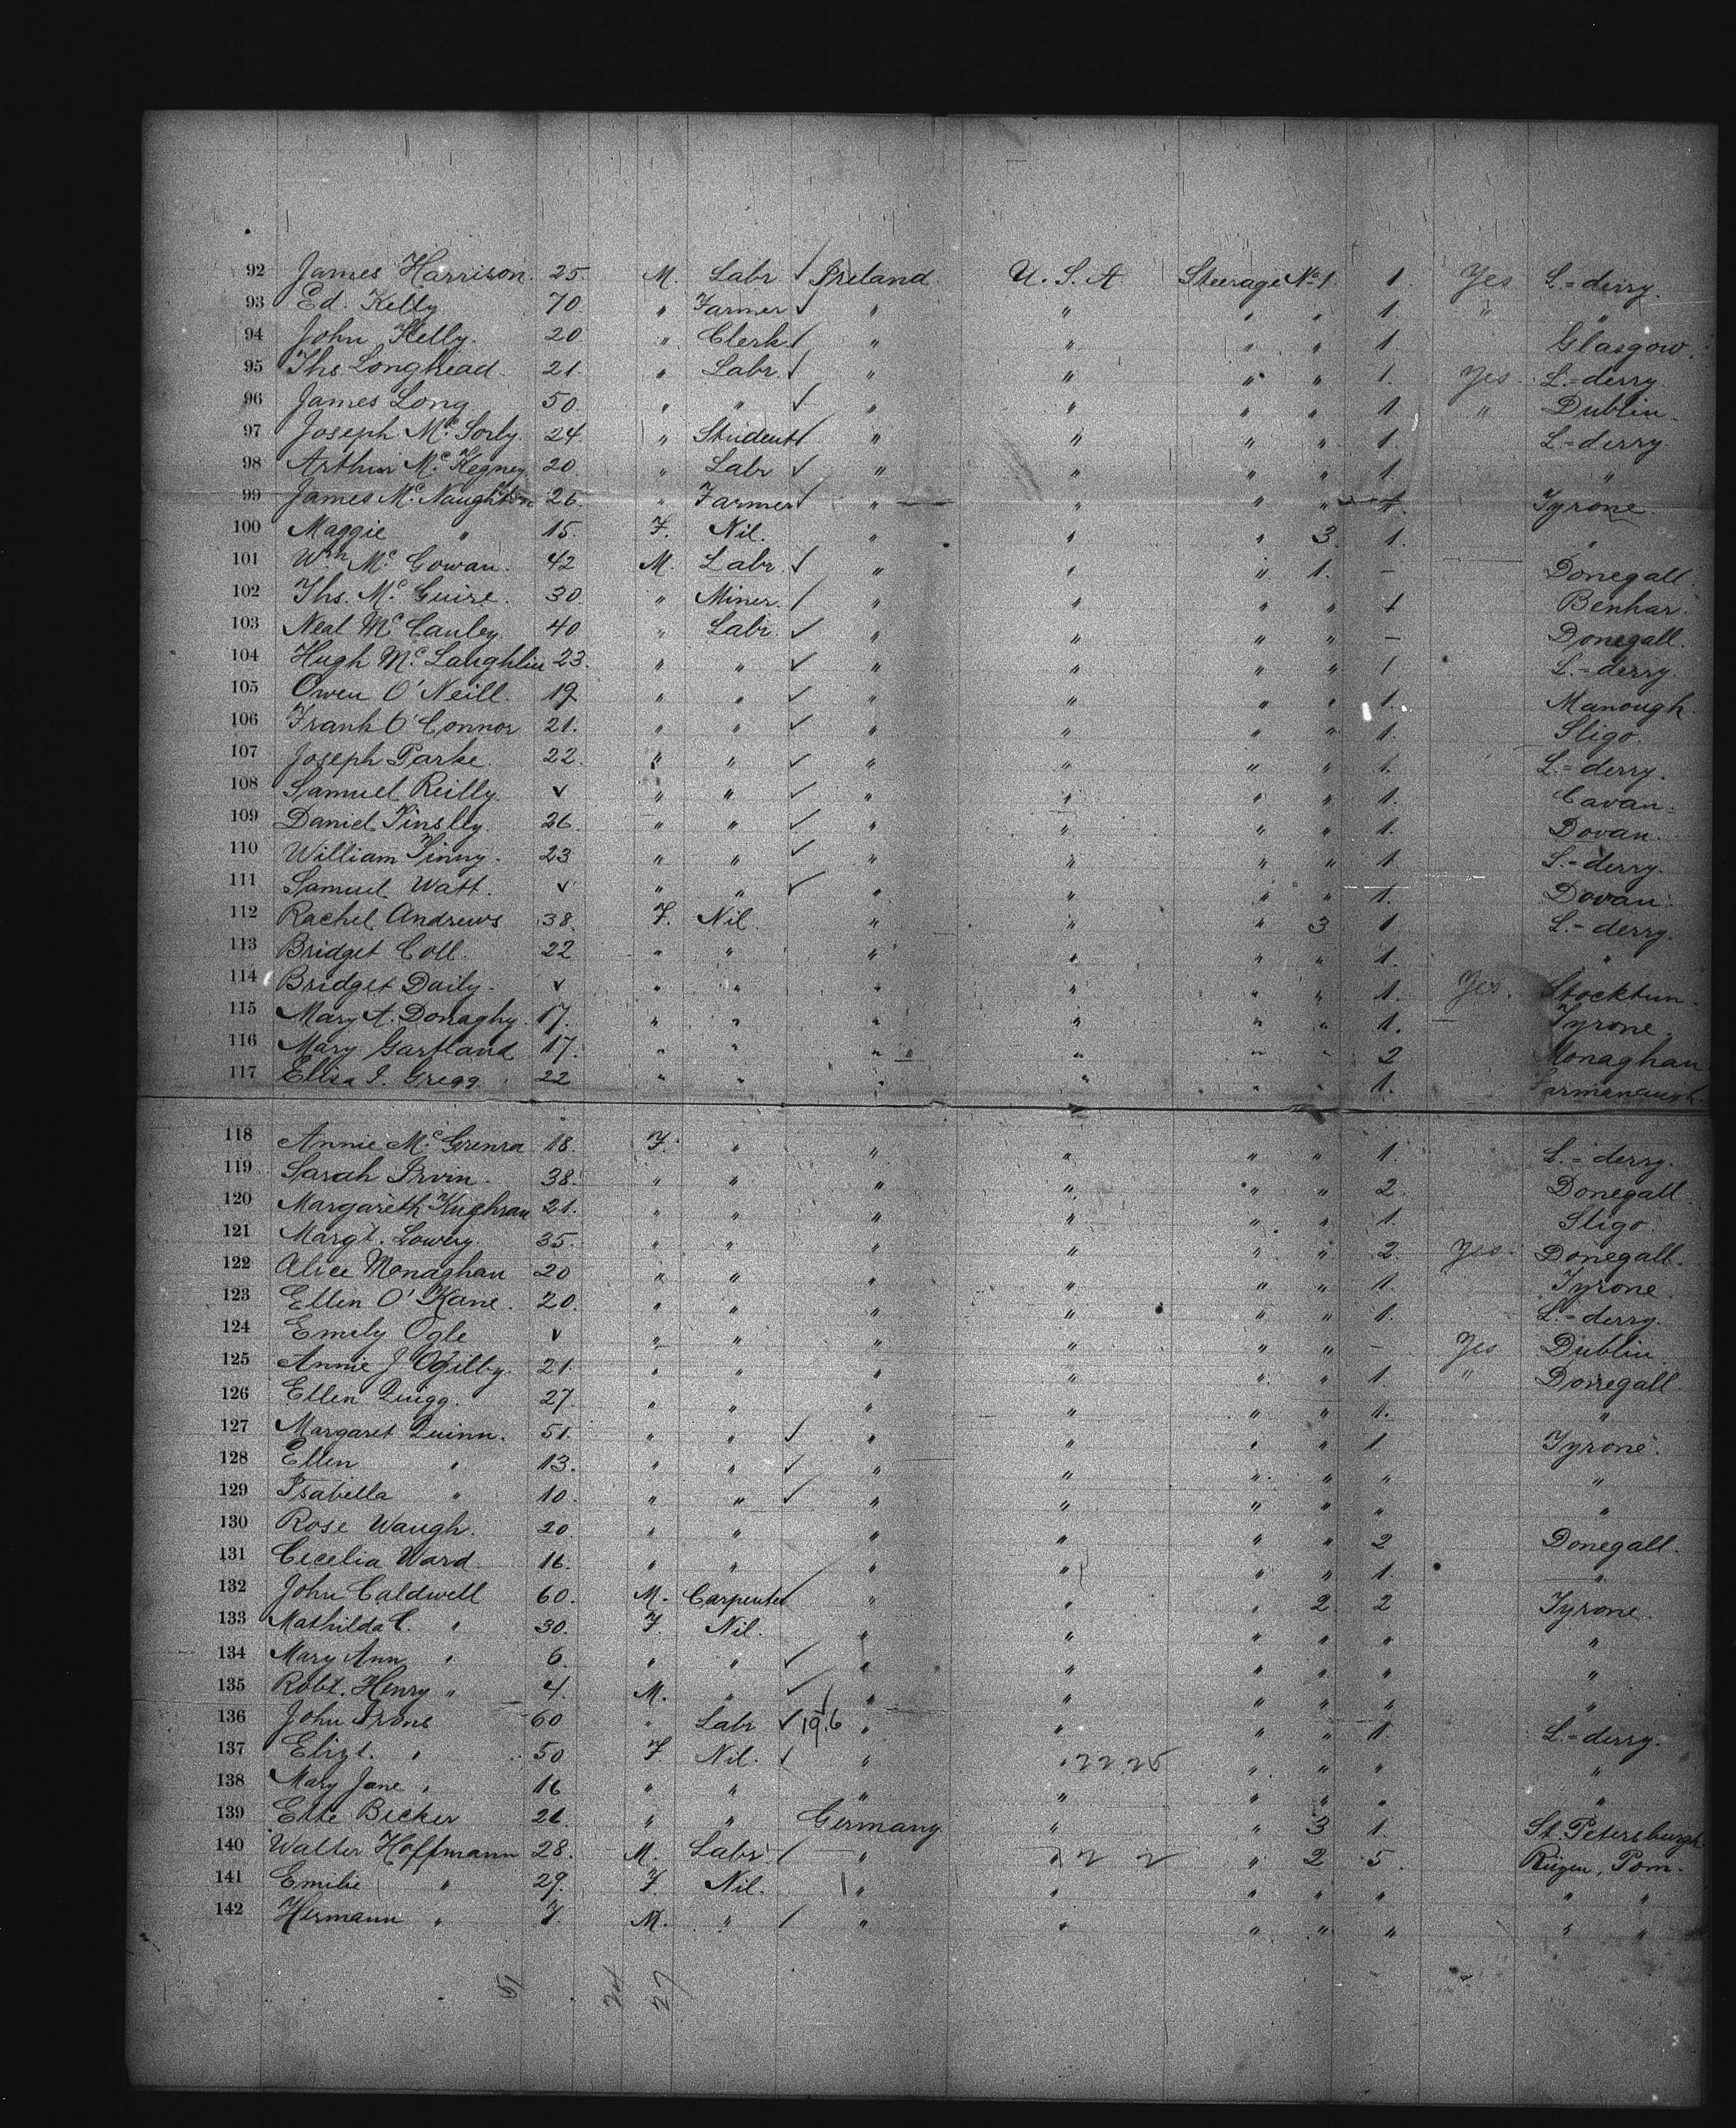 92 James Harrison. 25. M. Labr ✓ Ireland U. S. A Steerage No 1. 1. Yes L=derry.
93 Ed. Kelly 70. " Farmer ✓ " " " " 1. " "
94 John Kelly. 20 " Clerk ✓ " " " " 1 Glasgow.
95 Ths Longhead. 21. " Labr. ✓ " " " " 1. Yes L=derry.
96 James Long 50. " " ✓ " " " " 1 " Dublin.
97 Joseph Mc Sorly. 24 " Student ✓ " " " " 1. L=derry
98 Arthur Mc Kegney 20 " Labr ✓ " " " " 1. "
99 James Mc Naughton 26. " Farmer ✓ " " " " 1. Tyrone.
100 Maggie " 15. F. Nil. " " " 3. 1. "
101 Wm Mc Gowan. 42 M. Labr. ✓ " " " 1. - Donegall.
102 Ths. Mc Guire. 30. " Miner. ✓ " " " " 1 Benhar.
103 Neal Mc Cauley. 40. " Labr. ✓ " " " " - Donegall.
104 Hugh Mc Laughlin 23. " " ✓ " " " " 1 L=derry.
105 Owen O'Neill. 19. " " ✓ " " " " 1. Manough
106 Frank O'Connor 21. " " ✓ " " " " 1. Sligo.
107 Joseph Parke. 22. " " ✓ " " " " 1. L=derry.
108 Samuel Reilly. ✓ " " ✓ " " " " 1. Cavan.
109 Daniel Tinsley. 26. " " ✓ " " " " 1. Dovan.
110 William Tinny. 23 " " ✓ " " " " 1. L=derry
111 Samuel Watt. ✓ " " ✓ " " " " 1. Dovan.
112 Rachel Andrews 38. F. Nil. " " " 3 1 L=derry.
113 Bridget Coll. 22 " " " " " " 1. "
114 Bridget Daily. ✓ " " " " " " 1. Yes. Stocktun.
115 Mary A. Donaghy. 17. " " " " " " 1. Tyrone.
116 Mary Gartland 17. " " " " " " 2 Monaghan
117 Elisa J. Gregg. 22 " " " " " " 1.
118 Annie Mc Grenra 18. F. " " " " " 1. L=derry.
119 Sarah Irvin. 38. " " " " " " 2. Donegall.
120 Margareth Kughran 21. " " " " " " 1. Sligo.
121 Margt. Lowery. 35. " " " " " " 2. Yes Donegall.
122 Alice Monaghan 20 " " " " " " 1. Tyrone.
123 Ellen O'Kane. 20. " " " " " " 1. L=derry.
124 Emily Ogle ✓ " " " " " " - Yes Dublin.
125 Annie J Ogilby. 21. " " " " " " 1. " Donegall.
126 Ellen Quigg. 27. " " " " " " 1. "
127 Margaret Quinn. 51. " " ✓ " " " " 1 Tyrone.
128 Ellen " 13. " " ✓ " " " " " "
129 Isabella " 10. " " ✓ " " " " " "
130 Rose Waugh. 20. " " " " " " 2 Donegall.
131 Cecelia Ward. 16. " " " " " " 1. "
132 John Caldwell 60. M. Carpenter ✓ " " " 2. 2 Tyrone.
133 Mathilda C. " 30. F. Nil. " " " " " "
134 Mary Ann " 6. " " ✓ " " " " " "
135 Robt. Henry " 4. M. " ✓ " " " " " "
136 John Irons 60 " Labr ✓ 19.6 " " " " 1. L=derry.
137 Elizt. " 50 F Nil. ✓ " " 22 25 " " " "
138 Mary Jane " 16 " " " " " " " "
139 Else Becker 26. " " Germany " " 3 1. St. Petersburgh
140 Walter Hoffmann 28. M. Labr. ✓ " " 2 2 " 2 5. Rügen, Pom.
141 Emilie " 29. F. Nil. " " " " " " "
142 Hermann " 7. M. " ✓ " " " " " " "
51 24 27